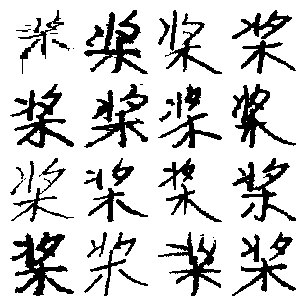 桨桨桨桨
桨桨桨桨
桨桨桨桨
桨桨桨桨